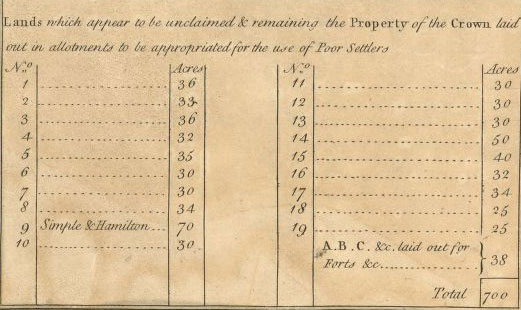 Lands which appear to be unclaimed & remaining the Property of the Crown laid
out in allotments to be appropriated for the use of Poor Settlers
No. Acres
1 ........ 36
2 ........ 33
3 ........ 36
4 ........ 32
5 ........ 35
6 ........ 30
7 ........ 30
8 ........ 34
9 Simple & Hamilton... 70
10 ........ 30
No. Acres
11 ........ 30
12 ........ 30
13 ........ 30
14 ........ 50
15 ........ 40
16 ........ 32
17 ........ 34
18 ........ 25
19 ........ 25
A.B.C. &c. laid out for
Forts &c........ } 38
Total 700